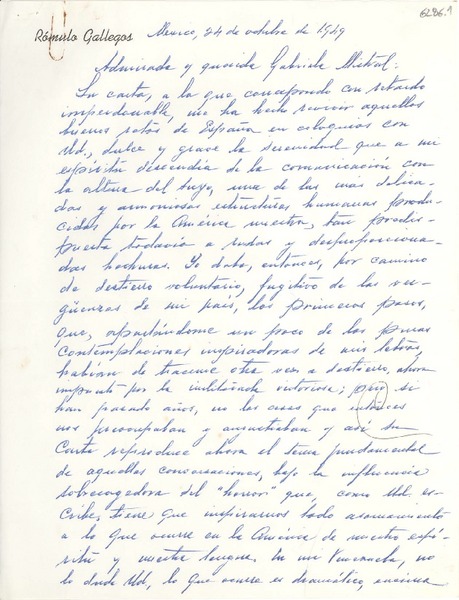 6286.1
Rómulo Gallegos
Mexico, 24 de octubre de 1949
Admirada y querida Gabriela Mistral:
Su carta, a la que correspondo con retardo
imperdonable, me ha hecho revivir aquellos
buenos ratos de España en coloquios con
Ud., dulce y grave la serenidad que a mi
espíritu descendía de la comunicación con
la altura del suyo, una de las más delica-
das y armoniosas estructuras humanas produ-
cidas por la América nuestra, tan predis-
puesta todavía a rudas y desproporciona-
das hechuras. Yo daba, entonces, por camino
de destierro voluntario, fugitivo de las ver-
güenzas de mi país, los primeros pasos,
que, apartándome un poco de las puras
contemplaciones inspiradoras de mis letras,
habían de traerme otra vez a destierro, ahora
impuesto por la victoriosa; pero si
han pasado años, no las cosas que entonces
nos preocupaban y angustiaban y así su
carta reproduce ahora el tema fundamental
de aquellas conversaciones, bajo la influencia
sobrecogedora del "horror" que, como Ud. es-
cribe, tiene que inspirarnos todo asomamiento
a lo que ocurre en la América de nuestro espí-
ritu y nuestra lengua. En mi Venezuela, no
lo dude Ud., lo que ocurre es dramático, encima